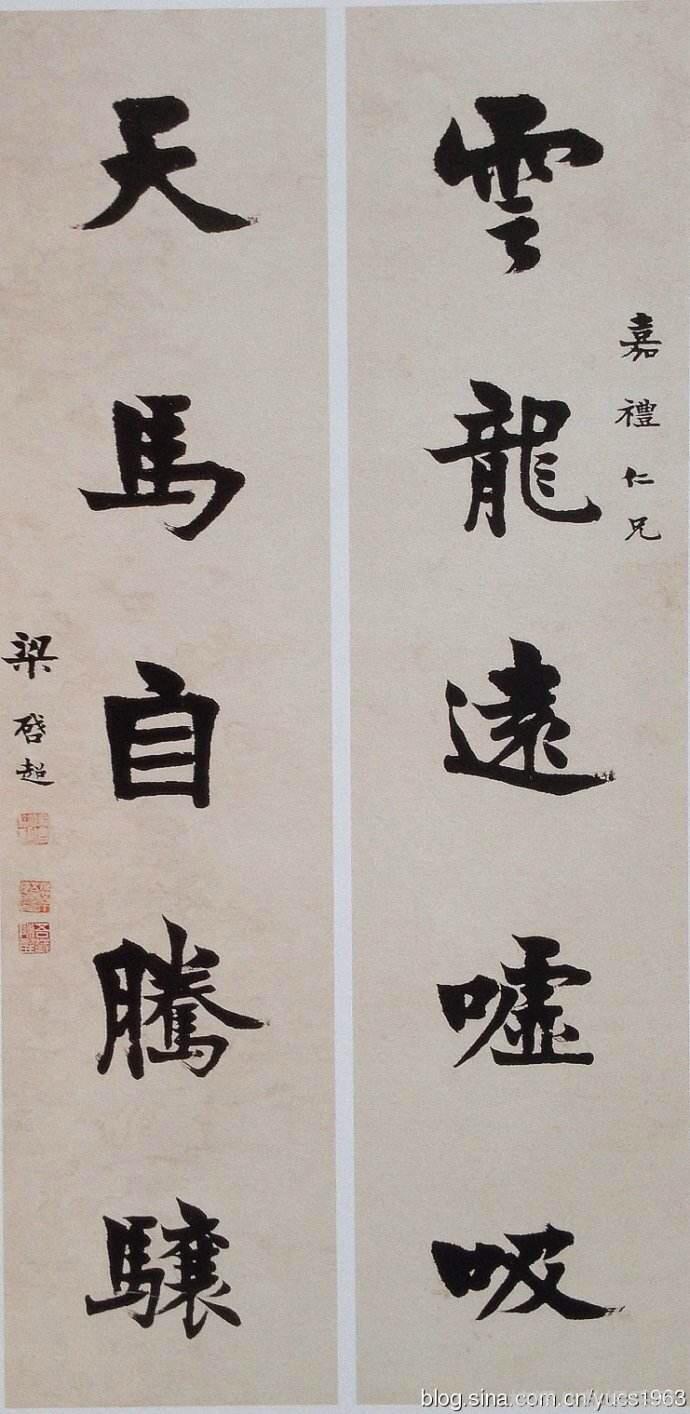 雲龍遠嘘吸
嘉禮仁兄
天馬自騰驤
梁啓超
blog.sina.com.cn/yucs1963